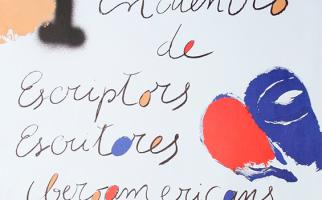 1 Encuentro
de
Escriptors
Escritores
iberoamericans